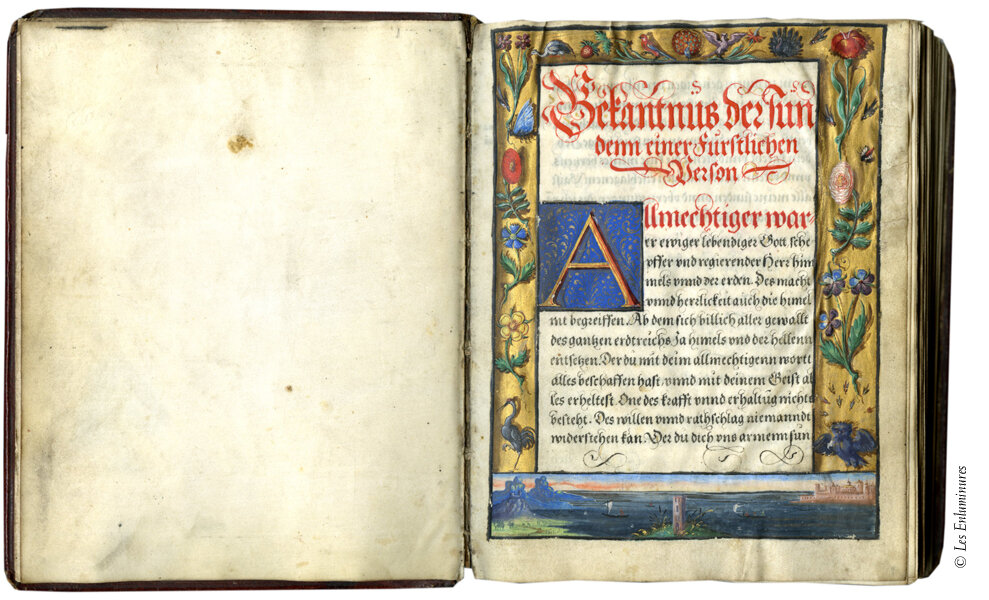 Bekantnus der sun
denn einer Fürstlichen
Person
Allmechtiger war-
er ewiger lebendiger Gott sche
pffer vnd regierender Herr him
mels vnnd der erden. Des macht
vnnd herrlickeit auch die himel
nit begreiffen. Ab dem sich billich aller gewallt
des gantzen erdtreichs Ja himels vnd der hellenn
entsetzen. Der du mit deim allmechtigenn wortt
alles beschaffen hast vnnd mit deinem Geist al
les erheltest. One des krafft vnnd erhaltug nichts
besteht. Des willen vnnd rathschlag niemanndt
widerstehen kan. Der du dich vns armenn sun
© Les Enluminures